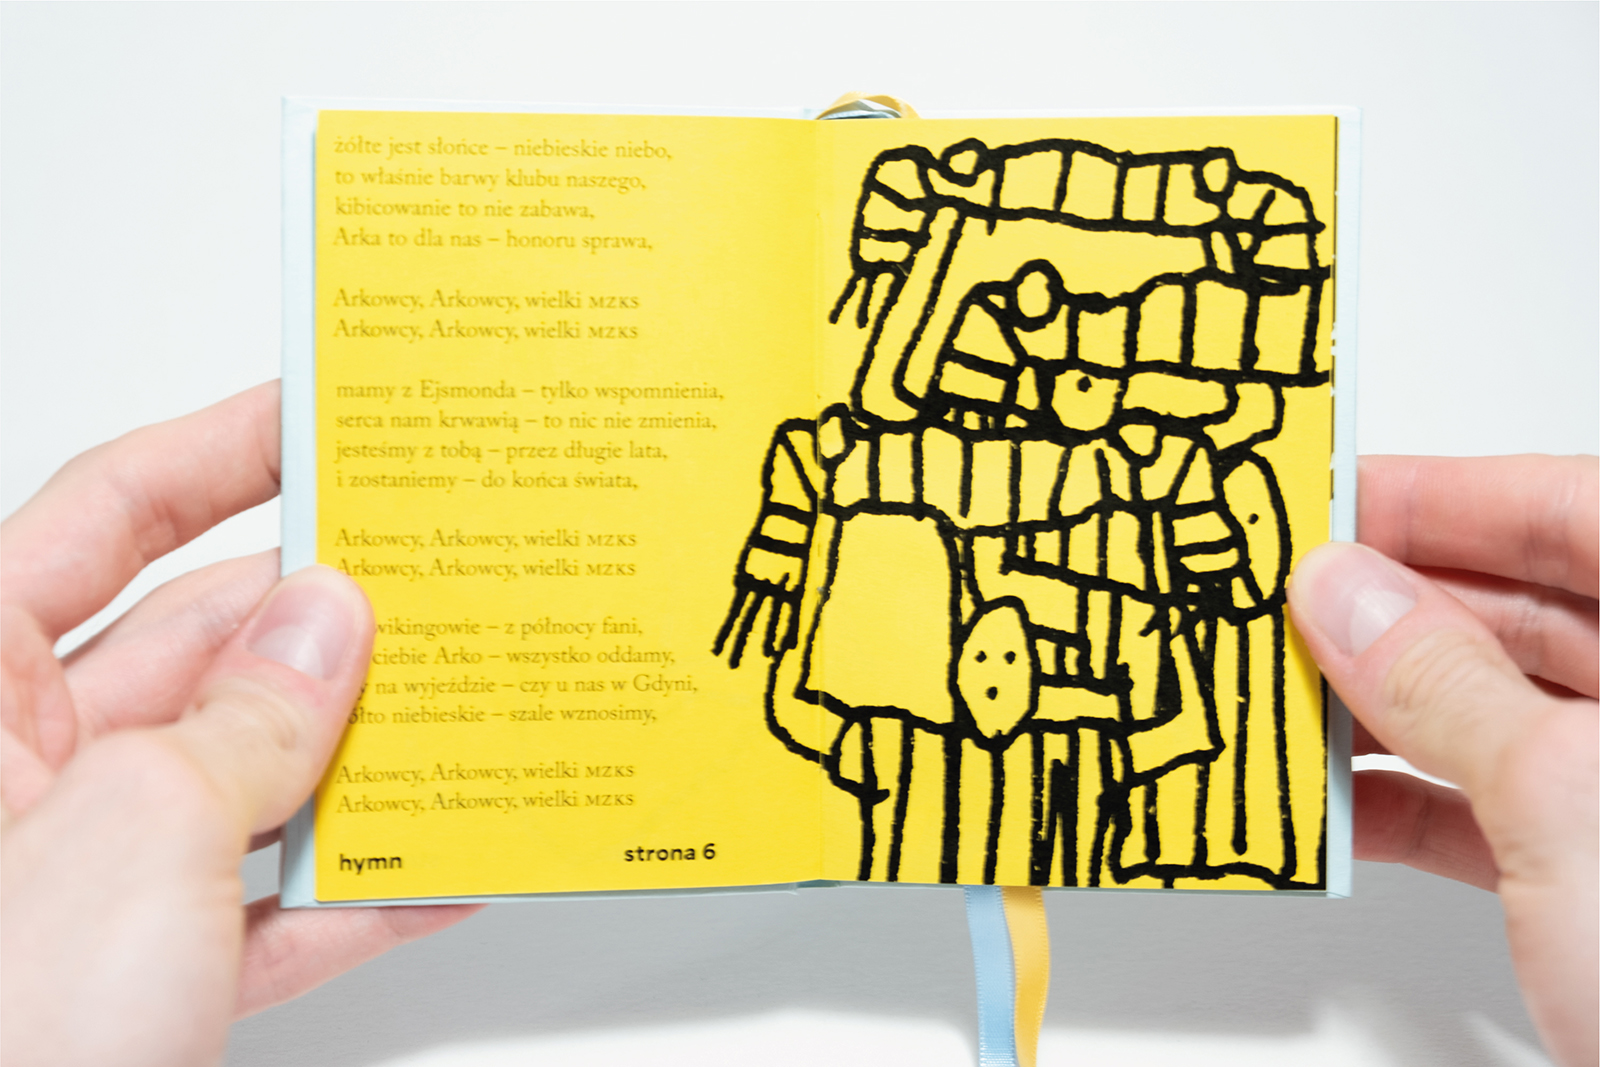 żółte jest słońce – niebieskie niebo,
to właśnie barwy klubu naszego,
kibicowanie to nie zabawa,
Arka to dla nas – honoru sprawa,
Arkowcy, Arkowcy, wielki MZKS
Arkowcy, Arkowcy, wielki MZKS
mamy z Ejsmonda – tylko wspomnienia,
serca nam krwawią – to nic nie zmienia,
jesteśmy z tobą – przez długie lata,
i zostaniemy – do końca świata,
Arkowcy, Arkowcy, wielki MZKS
Arkowcy, Arkowcy, wielki MZKS
wikingowie – z północy fani,
ciebie Arko – wszystko oddamy,
na wyjeździe – czy u nas w Gdyni,
niebieskie – szale wznosimy,
Arkowcy, Arkowcy, wielki MZKS
Arkowcy, Arkowcy, wielki MZKS
hymn
strona 6